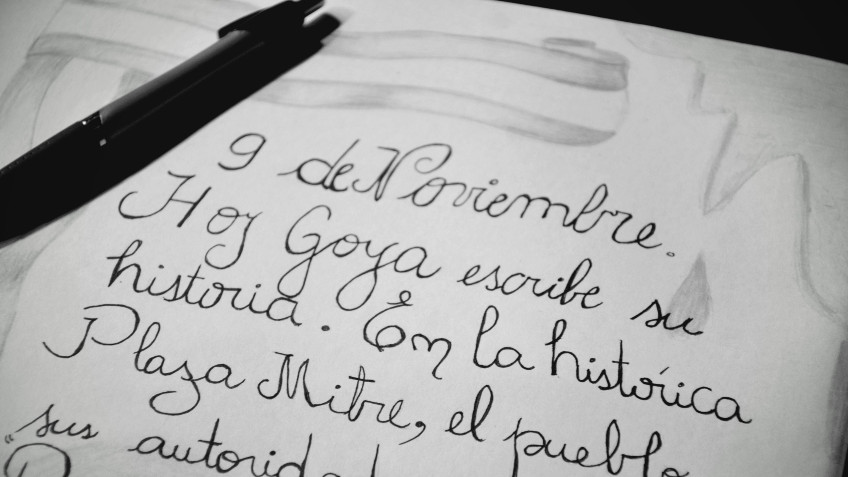 9 de Noviembre.
Hoy Goya escribe su
historia. En la histórica
Plaza Mitre, el pueblo
sus